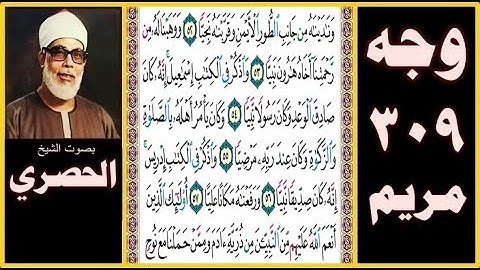 وجه
٣٠٩
مريم
وَنَٰدَيْنَٰهُ مِن جَانِبِ ٱلطُّورِ ٱلْأَيْمَنِ وَقَرَّبْنَٰهُ نَجِيًّا ٥٢ وَوَهَبْنَا لَهُۥ مِن
رَّحْمَتِنَآ أَخَاهُ هَٰرُونَ نَبِيًّا ٥٣ وَٱذْكُرْ فِى ٱلْكِتَٰبِ إِسْمَٰعِيلَ إِنَّهُۥ كَانَ
صَادِقَ ٱلْوَعْدِ وَكَانَ رَسُولًا نَّبِيًّا ٥٤ وَكَانَ يَأْمُرُ أَهْلَهُۥ بِٱلصَّلَوٰةِ
وَٱلزَّكَوٰةِ وَكَانَ عِندَ رَبِّهِۦ مَرْضِيًّا ٥٥ وَٱذْكُرْ فِى ٱلْكِتَٰبِ إِدْرِيسَ
إِنَّهُۥ كَانَ صِدِّيقًا نَّبِيًّا ٥٦ وَرَفَعْنَٰهُ مَكَانًا عَلِيًّا ٥٧ أُو۟لَٰٓئِكَ ٱلَّذِينَ
أَنْعَمَ ٱللَّهُ عَلَيْهِم مِّنَ ٱلنَّبِيِّـۧنَ مِن ذُرِّيَّةِ ءَادَمَ وَمِمَّنْ حَمَلْنَا مَعَ نُوحٍ
بصوت الشيخ
الحصري